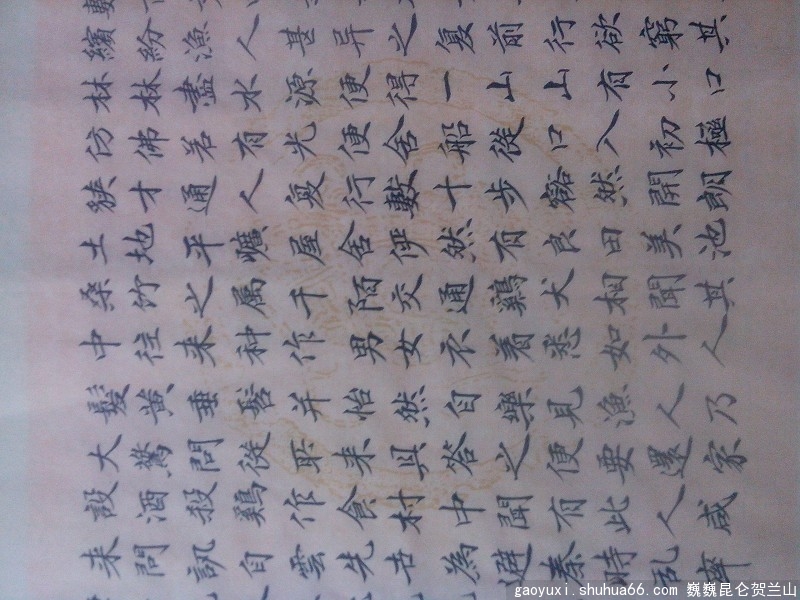 繽紛漁人甚异之复前行欲窮其
林林盡水源便得一山山有小口
仿佛若有光便舍船從口入初極
狭才通人复行數十步豁然開朗
土地平曠屋舍俨然有良田美池
桑竹之属千陌交通鷄犬相聞其
中往来种作男女衣着悉如外人
髮黄垂髫并怡然自樂見漁人乃
大驚問從所来具答之便要還家
設酒殺鷄作食村中聞有此人咸
来問訊自雲先世為避秦時乱率
gaoyuxi.shuhua66.com 巍巍昆仑贺兰山